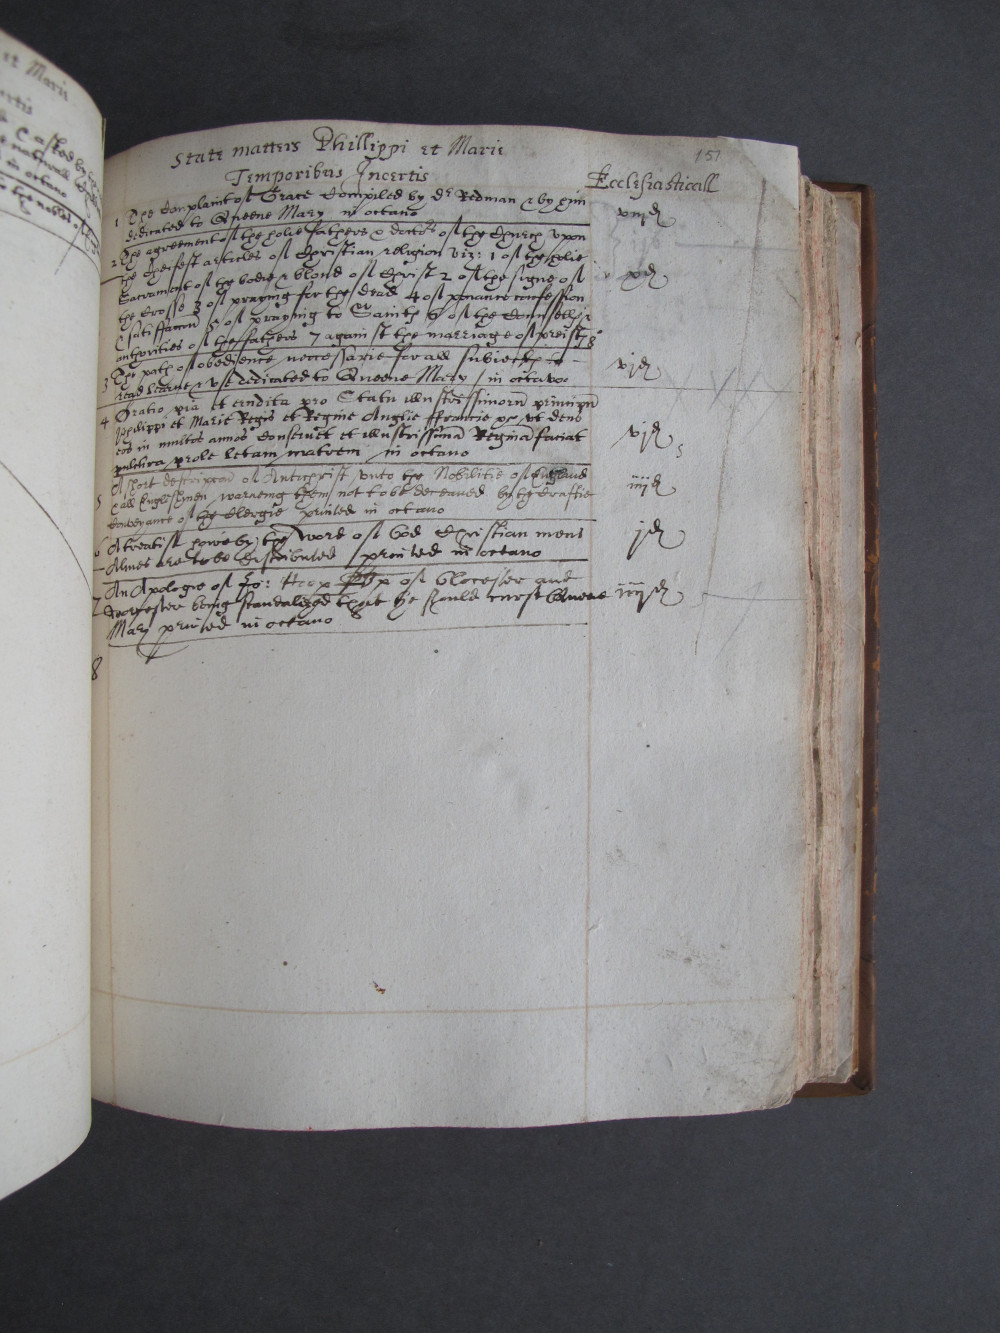 State matters Phillippi et Marie
Temporibus Incertis
Ecclesiasticall
151
1 The Complaint of Grace Compiled by Dr Redman & by him
dedicated to Queene Mary in octavo
viijd
2 The agreement of the holie fathers & doctors of the Church upon
the cheifest articles of Christian religion viz: 1 of the holie
Sacrament of the bodie & bloud of Christ 2 of the signe of
the Crosse 3 of praying for the dead 4 of penance confession
& satisfaccon 5 of praying to Saints 6 of the
authorities of the fathers 7 against the marriage of preists 8
xd
3 The path of obedience neccessarie for all subiects to
read learne & use dedicated to Queene Mary / in octavo
vjd
4 Oratio pia et erudita pro Statu illustrissimorum principum
Philippi et Marie Regis et Regine Anglie ffrancie &c ut deus
eos in multos annos conservet et illustrissimam Reginam faciat
pulchra prole letam matrem in octavo
vjd
5 A short description of Antechrist unto the Nobilitie of England
& all Englishmen warneing them not to be deceaved by the craftie
conveyance of the Clergie printed in octavo
iiijd
6 A treatise howe by the word of God Christian mens
Almes are to be distributed / printed in octavo
jd
7 An Apologie of Jo: of Glocester and
Worcester being scandalized that he should curse Queene
Mary printed in octavo
iiijd
8